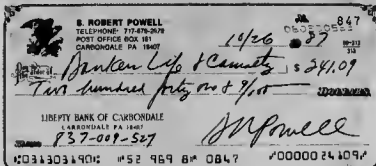 S. ROBERT POWELL 847
TELEPHONE: 717-876-2679
POST OFFICE BOX 161
CARBONDALE PA 18407
10/26 87
Bankers Life & Casualty $ 241.09
Two hundred forty one & 9/100
LIBERTY BANK OF CARBONDALE
CARBONDALE PA 18407
837-009-527 SRPowell
0313031901 52 969 8 0847 0000024109